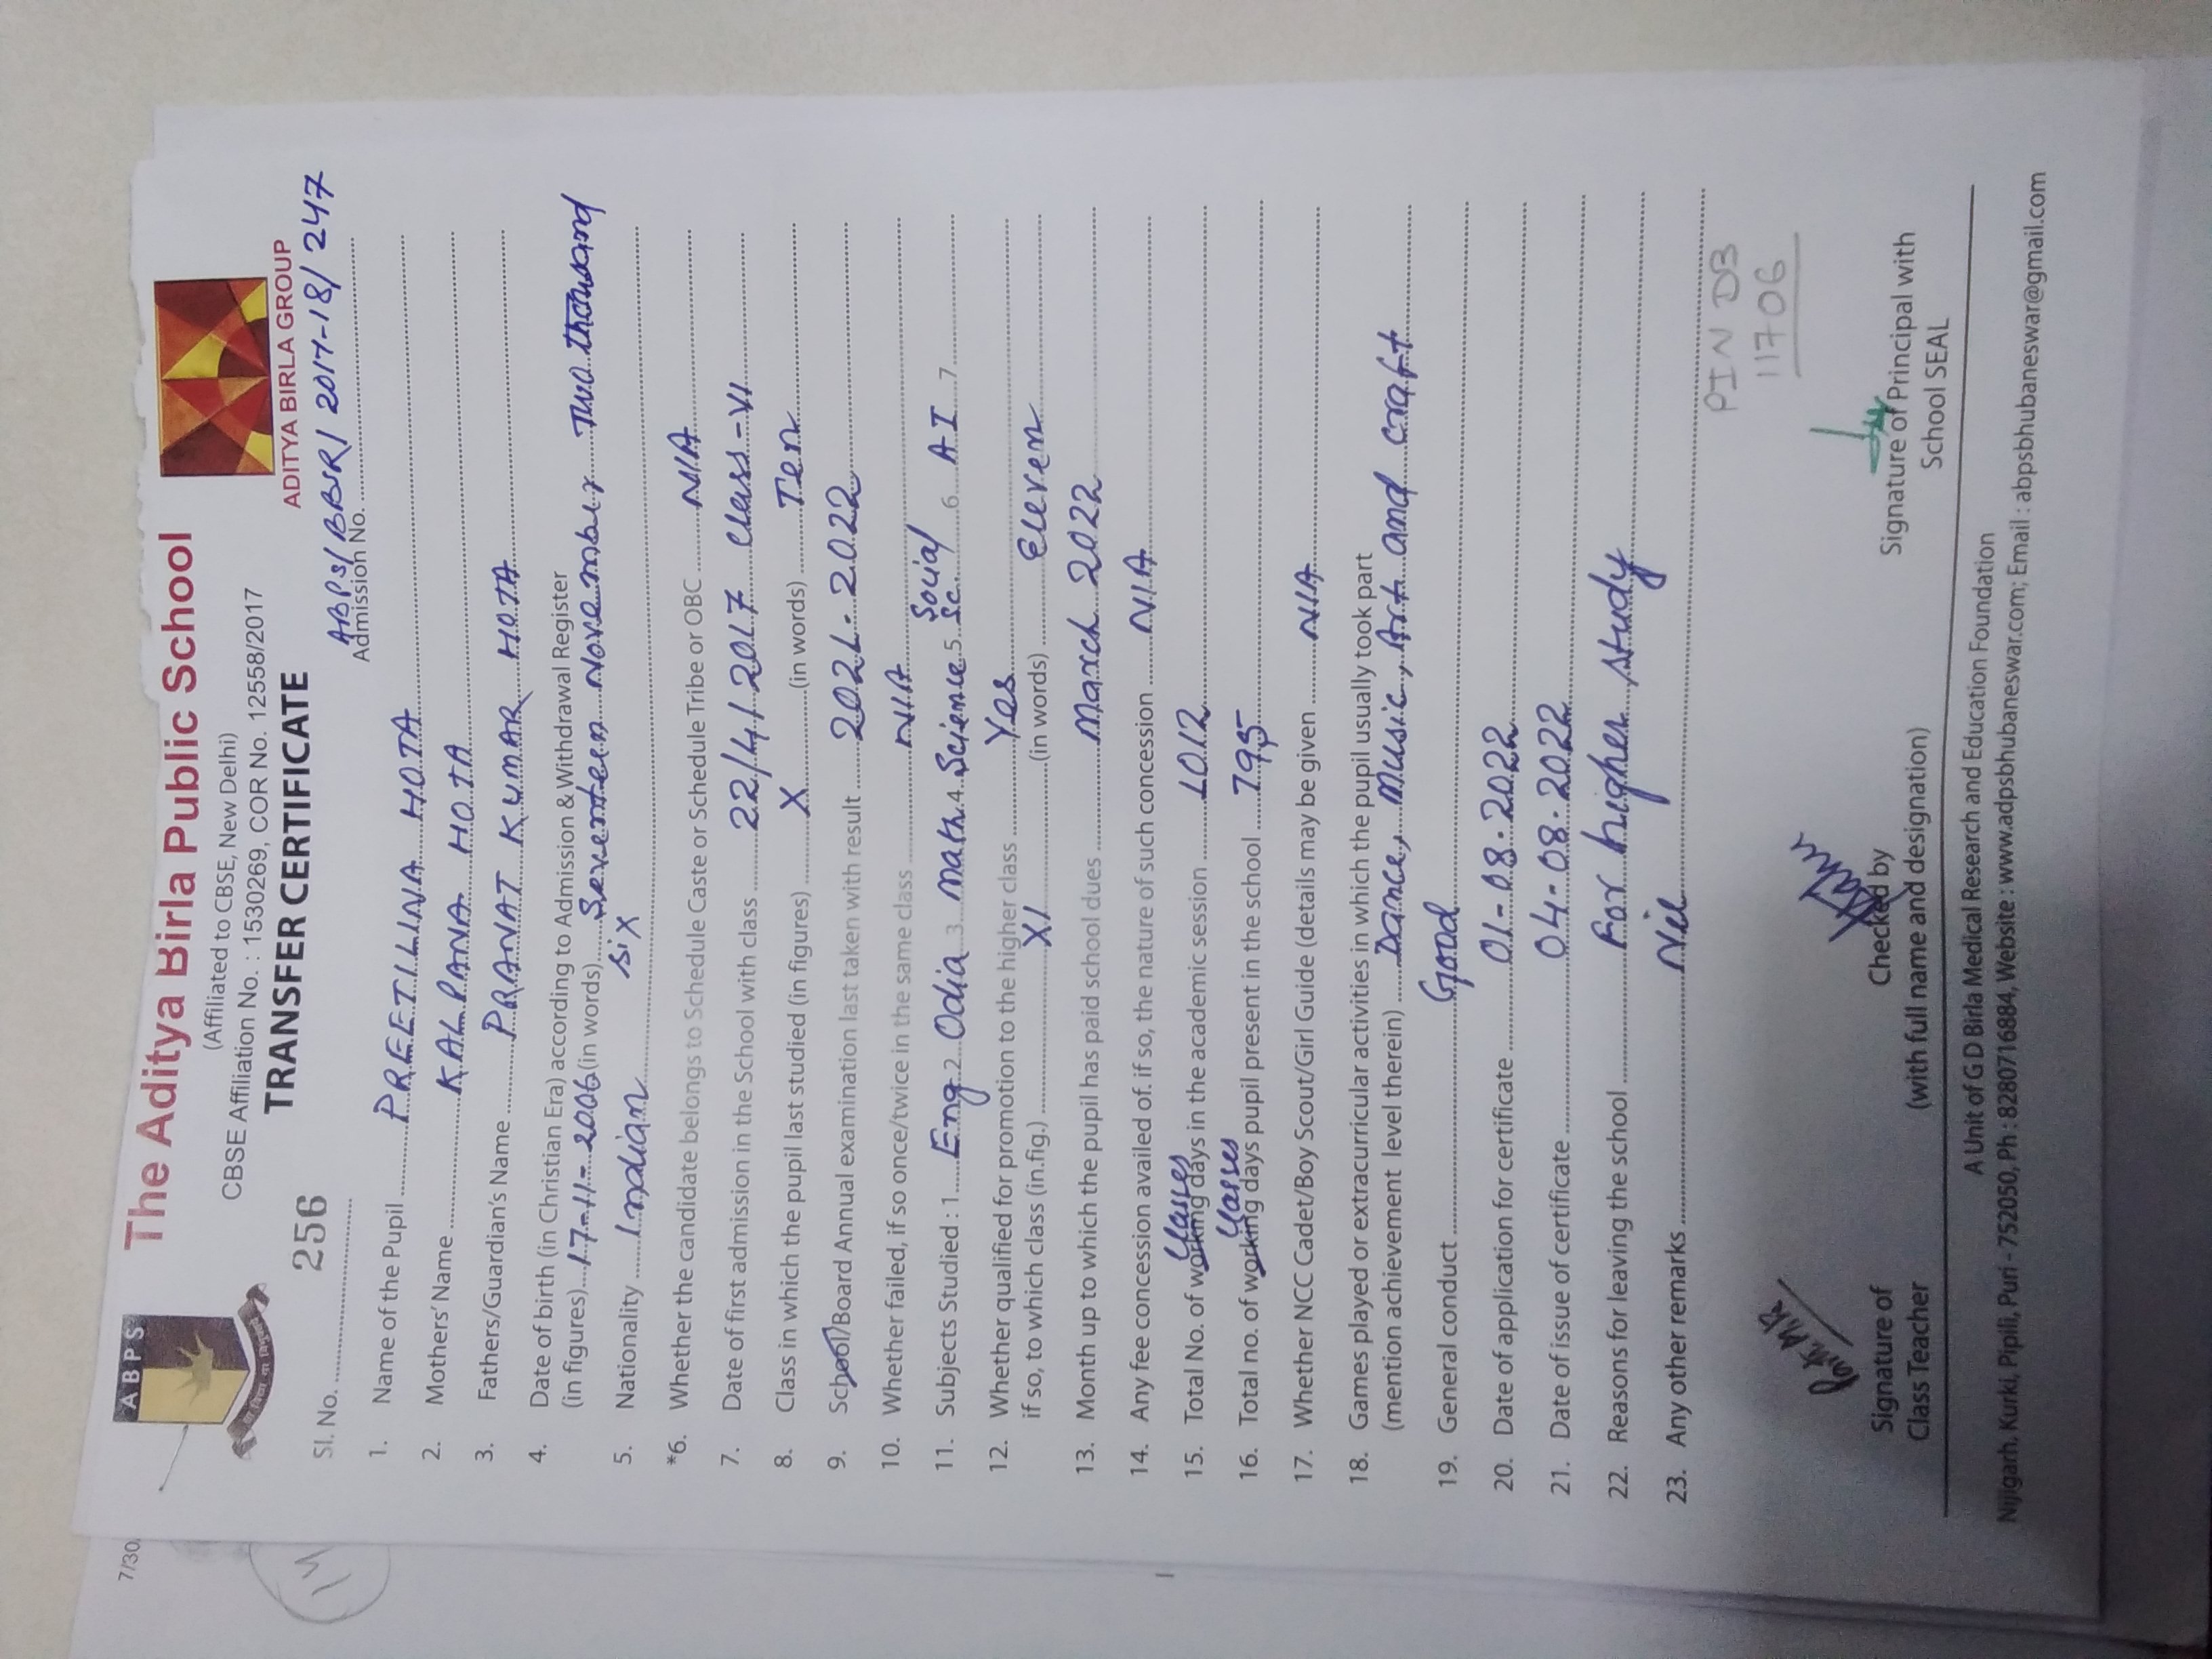 7/30
A B P S
The Aditya Birla Public School
(Affiliated to CBSE, New Delhi)
CBSE Affiliation No. : 1530269, COR No. 12558/2017
TRANSFER CERTIFICATE
ADITYA BIRLA GROUP
Sl. No. 256
Admission No. ABPS/BBSR/2017-18/247
1. Name of the Pupil PREETILINA HOTA
2. Mothers' Name KALPANA HOTA
3. Fathers/Guardian's Name PRANAT KUMAR HOTA
4. Date of birth (in Christian Era) according to Admission & Withdrawal Register
(in figures) 17-11-2006 (in words) Seventeen November Two thousand
six
5. Nationality Indian
*6. Whether the candidate belongs to Schedule Caste or Schedule Tribe or OBC N/A
7. Date of first admission in the School with class 22/4/2017 Class-VI
8. Class in which the pupil last studied (in figures) X (in words) Ten
9. School/Board Annual examination last taken with result 2021-2022
10. Whether failed, if so once/twice in the same class N/A
11. Subjects Studied : 1 Eng 2 Odia 3 Math 4 Science 5 Social Sc. 6 AI 7
12. Whether qualified for promotion to the higher class Yes
if so, to which class (in.fig.) XI (in words) Eleven
13. Month up to which the pupil has paid school dues March 2022
14. Any fee concession availed of. if so, the nature of such concession N/A
15. Total No. of working days in the academic session 1012
16. Total no. of working days pupil present in the school 795
17. Whether NCC Cadet/Boy Scout/Girl Guide (details may be given N/A
18. Games played or extracurricular activities in which the pupil usually took part
(mention achievement level therein) Dance, Music, Art and Craft
19. General conduct Good
20. Date of application for certificate 01-08-2022
21. Date of issue of certificate 04-08-2022
22. Reasons for leaving the school For higher study
23. Any other remarks Nil
PIN DB
11706
Signature of
Class Teacher
Checked by
(with full name and designation)
Signature of Principal with
School SEAL
A Unit of G D Birla Medical Research and Education Foundation
Nijigarh, Kurki, Pipili, Puri - 752050, Ph : 8280716884, Website : www.adpsbhubaneswar.com; Email : abpsbhubaneswar@gmail.com